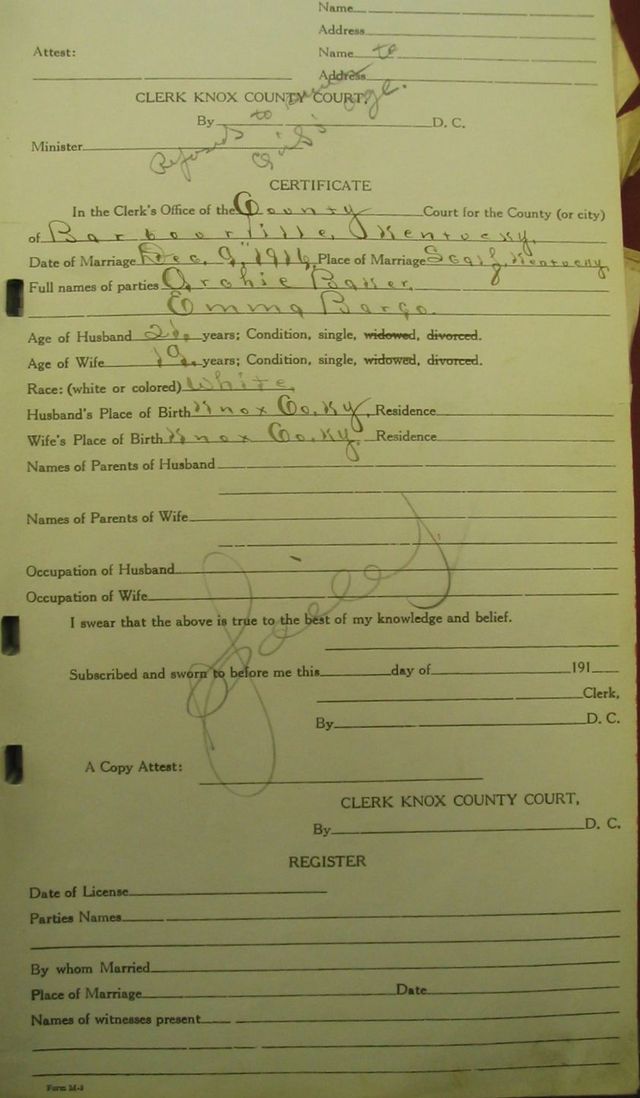 Name
Address
Attest:
Name to
Address
CLERK KNOX COUNTY COURT,
By D. C.
Minister
Refused to swear to Girl's age.
CERTIFICATE
In the Clerk's Office of the County Court for the County (or city)
of Barbourville, Kentucky,
Date of Marriage Dec. 9, 1916, Place of Marriage Scalf, Kentucky,
Full names of parties Archie Baker,
Emma Bargo.
Age of Husband 21, years; Condition, single, widowed, divorced.
Age of Wife 19, years; Condition, single, widowed, divorced.
Race: (white or colored) White,
Husband's Place of Birth Knox Co. Ky, Residence
Wife's Place of Birth Knox Co. Ky, Residence
Names of Parents of Husband
Names of Parents of Wife
Occupation of Husband
Occupation of Wife
I swear that the above is true to the best of my knowledge and belief.
Subscribed and sworn to before me this day of 191
Clerk,
By D. C.
A Copy Attest:
CLERK KNOX COUNTY COURT,
By D. C.
REGISTER
Date of License
Parties Names
By whom Married
Place of Marriage Date
Names of witnesses present
Form M-3